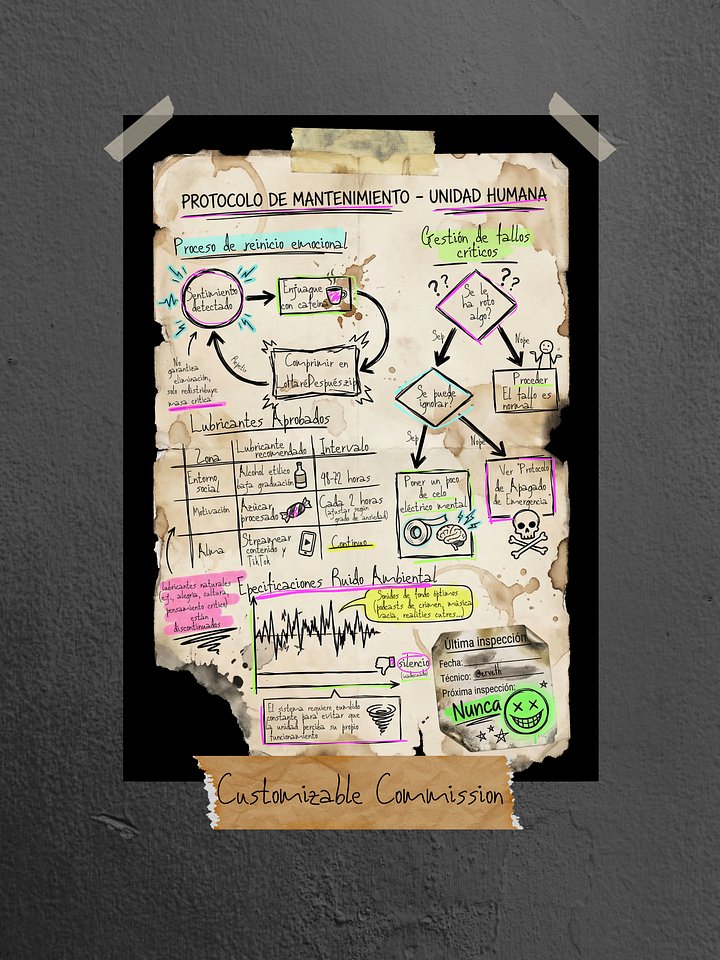 PROTOCOLO DE MANTENIMIENTO – UNIDAD HUMANA
Proceso de reinicio emocional
Sentimiento
detectado
Enjuague
con cafeína
Comprimir en
LoHaréDespués.zip
Repetir
No
garantiza
eliminación,
solo redistribuye
masa crítica
Gestión de fallos
críticos
??
??
Se le
ha roto
algo?
Sep
Nope
Proceder
El fallo es
normal
Se puede
ignorar?
Sep
Nope
Poner un poco
de celo
eléctrico mental
Ver "Protocolo
de Apagado
de Emergencia"
Lubricantes Aprobados
Zona
Lubricante
recomendado
Intervalo
Entorno
social
Alcohol etílico
baja graduación
48-72 horas
Motivación
Azúcar
procesado
Cada 2 horas
(ajustar según
grado de ansiedad)
Alma
Streamear
contenido y
TikTok
Continuo
Lubricantes naturales
(e.j., alegría, cultura,
pensamiento crítico)
están
discontinuados
Epecificaciones Ruido Ambiental
Sonidos de fondo óptimos
(podcasts de crimen, música
vacía, realities cutres...)
silencio
El sistema requiere zumbido
constante para evitar que
la unidad perciba su propio
funcionamiento
Última inspección
Fecha:
Técnico: @erveth
Próxima inspección:
Nunca
Customizable Commission